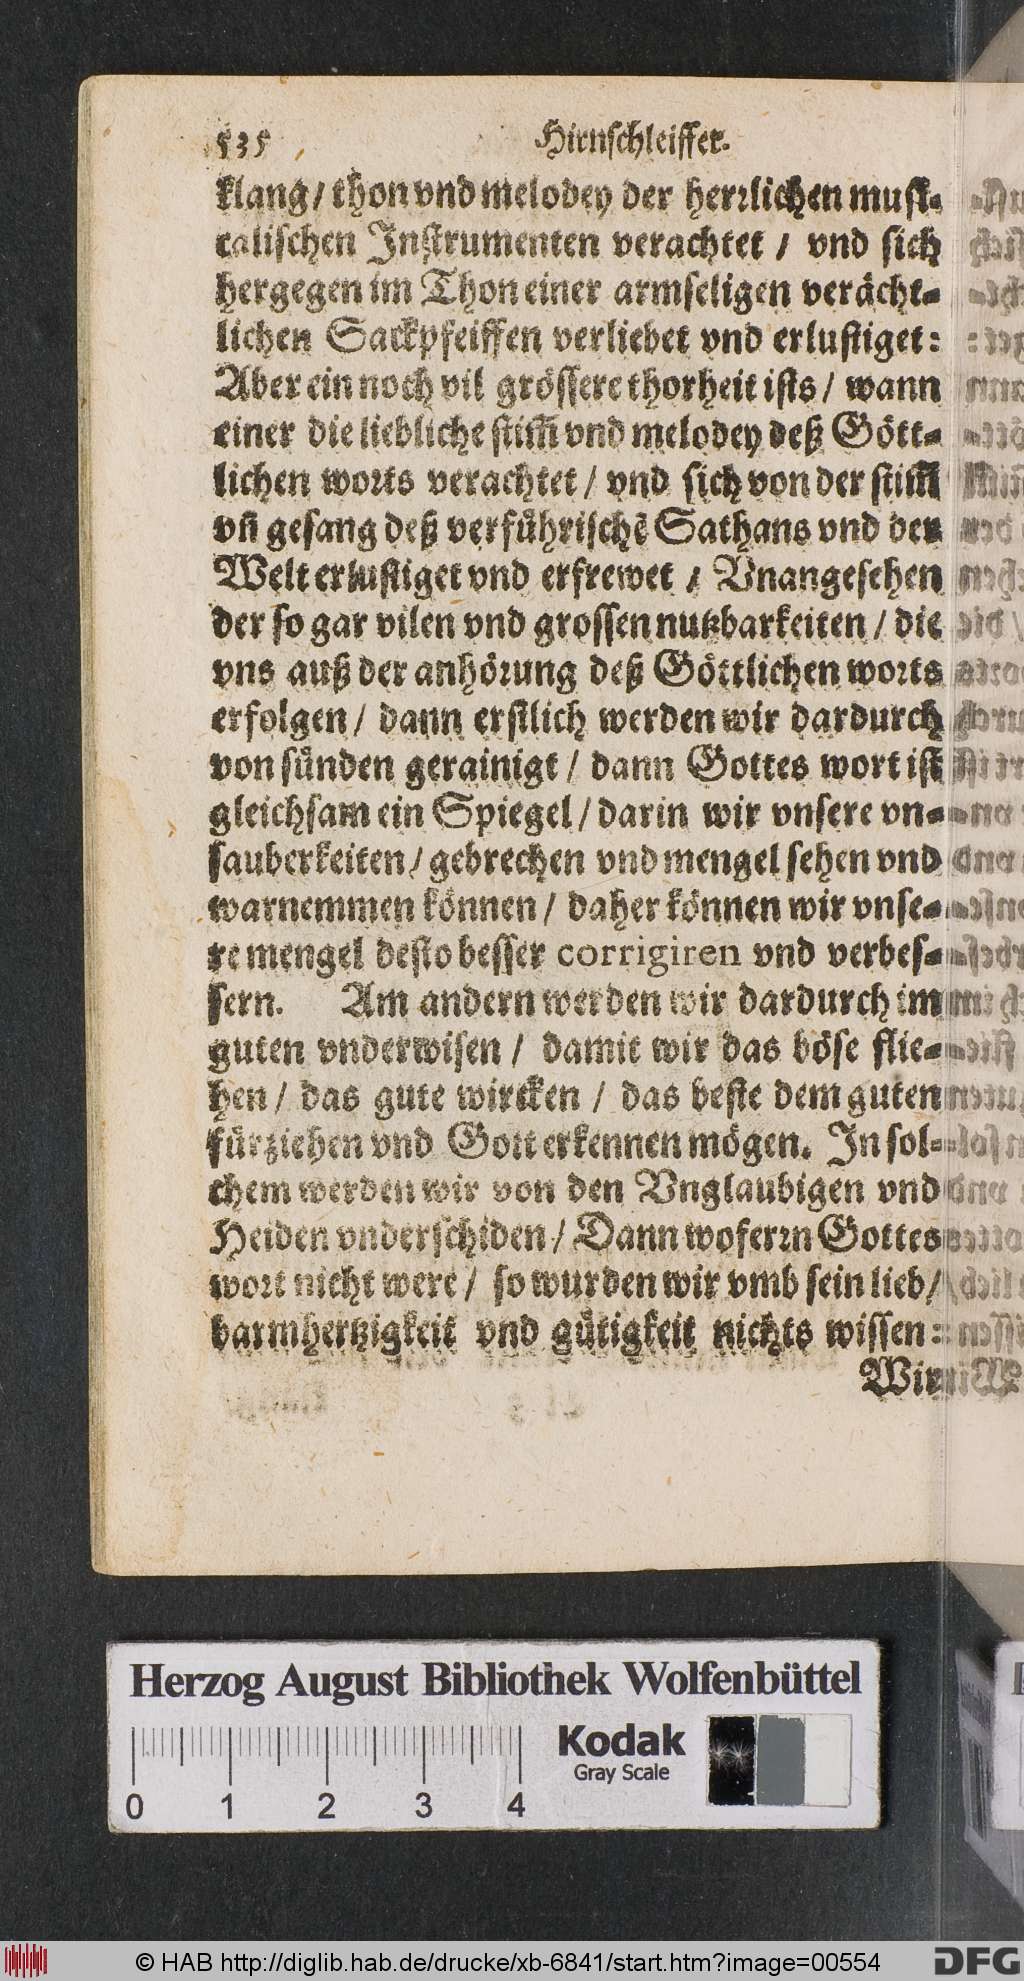 535 Hirnschleiffer.
klang / thon vnd melodey der herꝛlichen musi⸗
calischen Instrumenten verachtet / vnd sich
hergegen im Thon einer armseligen verächt⸗
lichen Sackpfeiffen verliebet vnd erlustiget:
Aber ein noch vil grössere thorheit ists / wann
einer die liebliche stim̃ vnd melodey deß Gött⸗
lichen worts verachtet / vnd sich von der stim̃
vñ gesang deß verfůhrischẽ Sathans vnd der
Welt erlustiget vnd erfrewet / Vnangesehen
der so gar vilen vnd grossen nutzbarkeiten / die
vns auß der anhörung deß Göttlichen worts
erfolgen / dann erstlich werden wir dardurch
von sůnden gerainigt / dann Gottes wort ist
gleichsam ein Spiegel / darin wir vnsere vn⸗
sauberkeiten / gebrechen vnd mengel sehen vnd
warnemmen können / daher können wir vnse⸗
re mengel desto besser corrigiren vnd verbes⸗
sern. Am andern werden wir dardurch im
guten vnderwisen / damit wir das böse flie⸗
hen / das gute wircken / das beste dem guten
fürziehen vnd Gott erkennen mögen. In sol⸗
chem werden wir von den Vnglaubigen vnd
Heiden vnderschiden / Dann woferꝛn Gottes
wort nicht were / so wurden wir vmb sein lieb /
barmhertzigkeit vnd gůtigkeit nichts wissen:
Wir
Herzog August Bibliothek Wolfenbüttel
Kodak
Gray Scale
0 1 2 3 4
© HAB http://diglib.hab.de/drucke/xb-6841/start.htm?image=00554
DFG